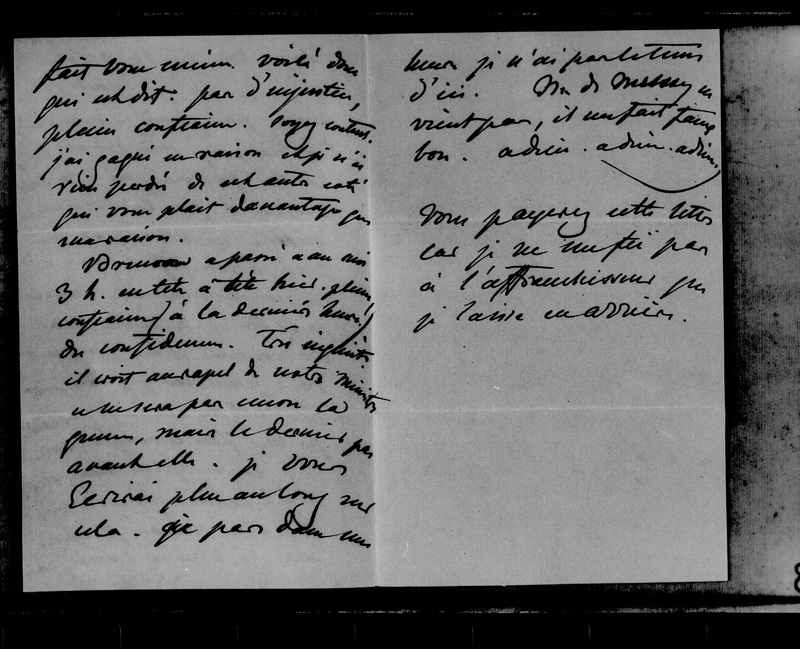 fait vous même. voilà donc
qui est dit. pas d'injustice,
pleine confiance. soyez content.
j'ai gagné en raison et je n'ai
rien perdu de cet autre coté
qui vous plait davantage que
ma raison.
a passé avec moi
3 h. en tête à tête hier. pleine
confiance (à la dernière heure!)
des confidences. Très inquiet.
il croit au rapel de notre ministre
ce ne sera pas encore la
guerre, mais le dernier pas
avant elle. je vous
Ecrirai plus au long sur
cela. je pars dans une
heure je n'ai pas le tems
d'ici. M. de
vient pas, il me fait faux
bon. adieu. adieu. adieu.
Vous payerez cette lettre
car je ne me fie pas
à l'affranchisseur que
je laisse en arrière.